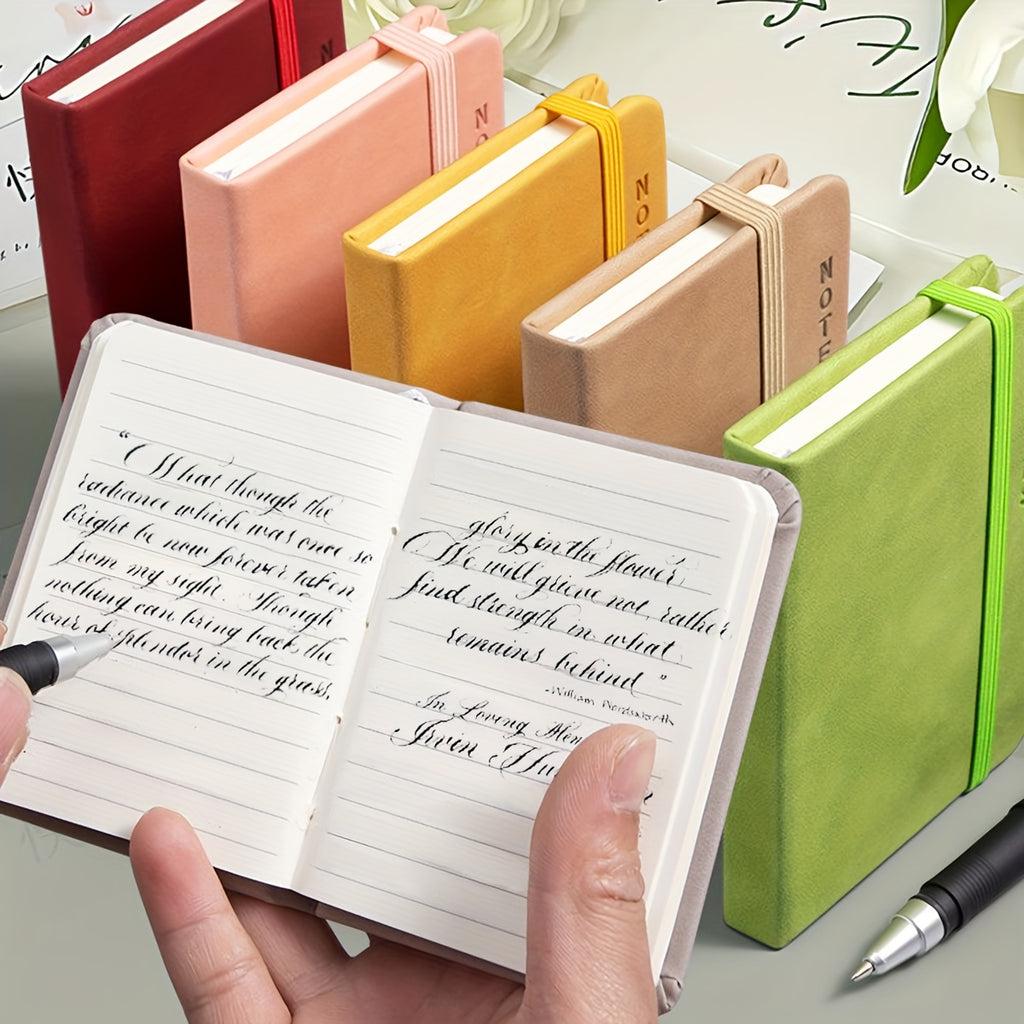 “What though the
radiance which was once so
bright be now forever taken
from my sight. Though
nothing can bring back the
hour of splendor in the grass,
glory in the flower,
We will grieve not, rather
find strength in what
remains behind ”
-William Wordsworth
In Loving
Irvin
NOTE